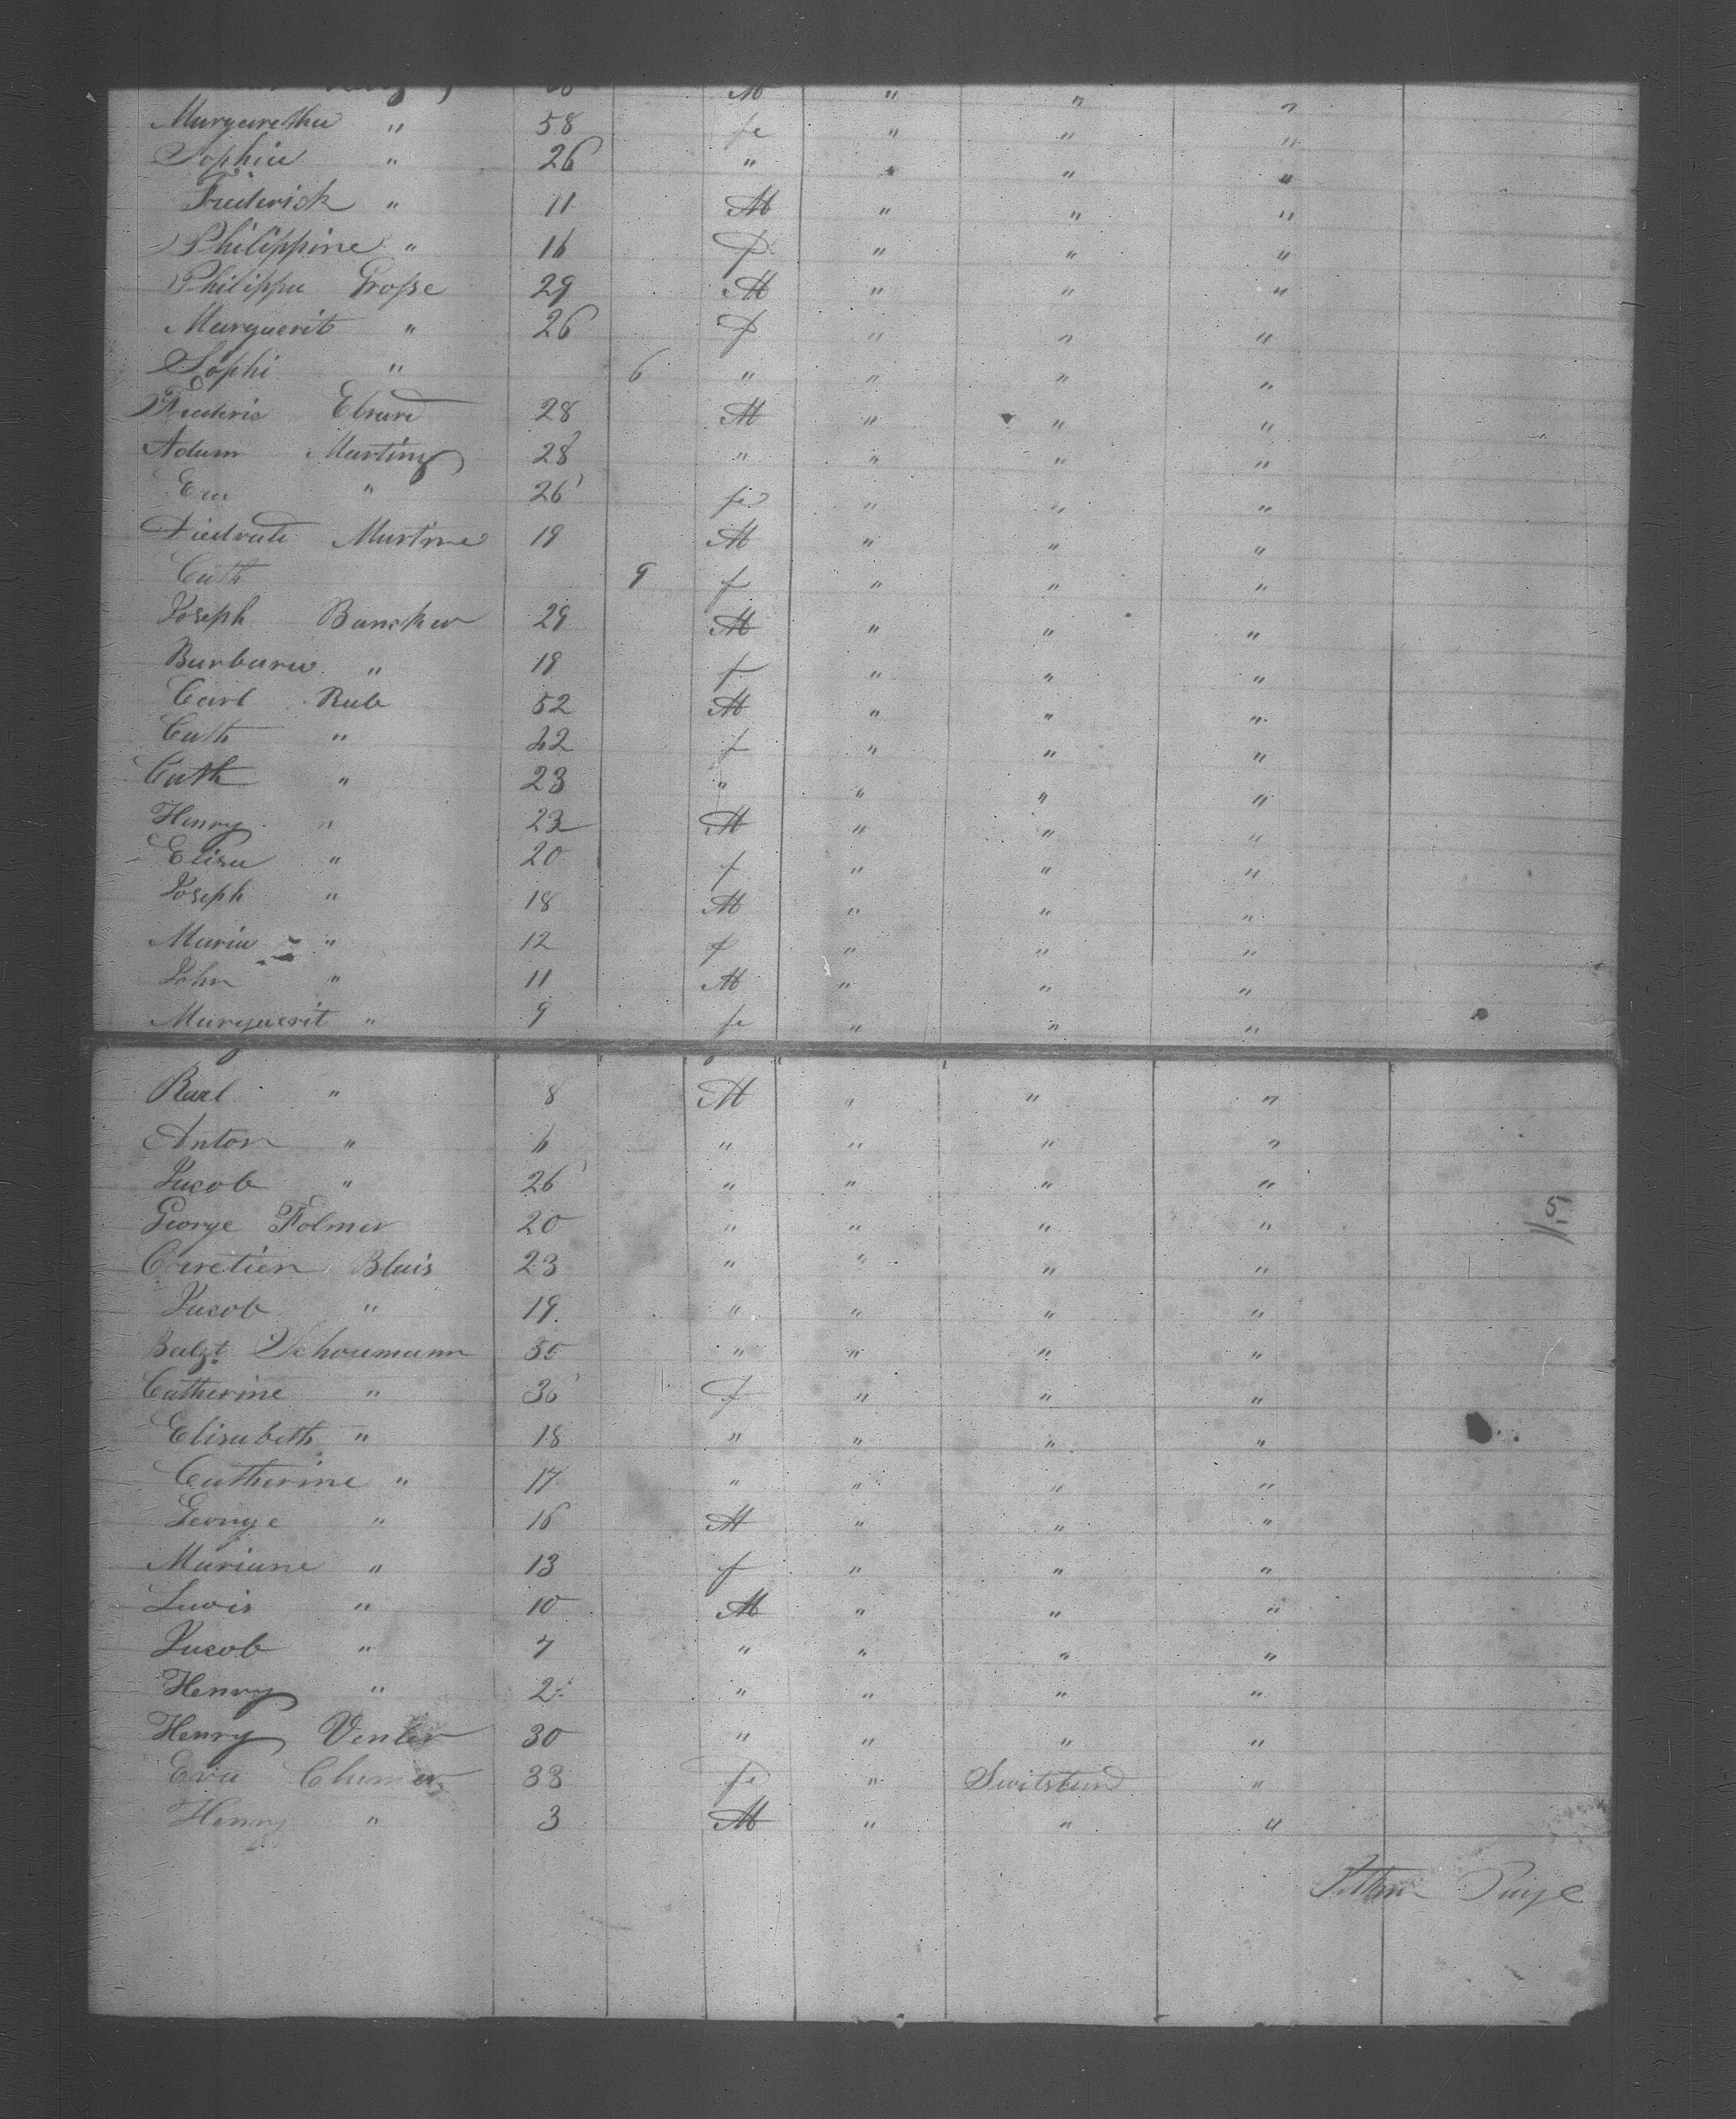 M " " "
Margaretha " 58 fe " " "
Sophia " 26 " " " "
Frederick " 11 M " " "
Philippine " 16 f " " "
Philippe Grosse 29 M " " "
Marguerit " 26 f " " "
Sophi " 6 " " " "
Frederic Ebrard 28 M " " "
Adam Marting 28 " " " "
Eva " 26 fe " " "
Martine 19 M " " "
Cath 9 f " " "
Joseph Buncker 29 M " " "
Barbara " 19 f " " "
Carl Rub 52 M " " "
Cath " 42 f " " "
Cath " 23 " " " "
Henry " 22 M " " "
Elisa " 20 f " " "
Joseph " 18 M " " "
Maria " 12 f " " "
John " 11 M " " "
Marguerit " 9 fe " " "
Karl " 8 M " " "
Anton " 6 " " " "
Jacob " 26 " " " "
George Folmer 20 " " " " 5
Cretien Blais 23 " " " "
Jacob " 19 " " " "
Balzt Schoumann 50 " " " "
Catherine " 36 f " " "
Elisabeth " 18 " " " "
Catherine " 17 " " " "
George " 16 M " " "
Mariane " 13 f " " "
Lewis " 10 M " " "
Jacob " 7 " " " "
Henry " 2 " " " "
Henry Venter 30 " " " "
Eva 33 fe " Switsland "
Henry " 3 M " " "